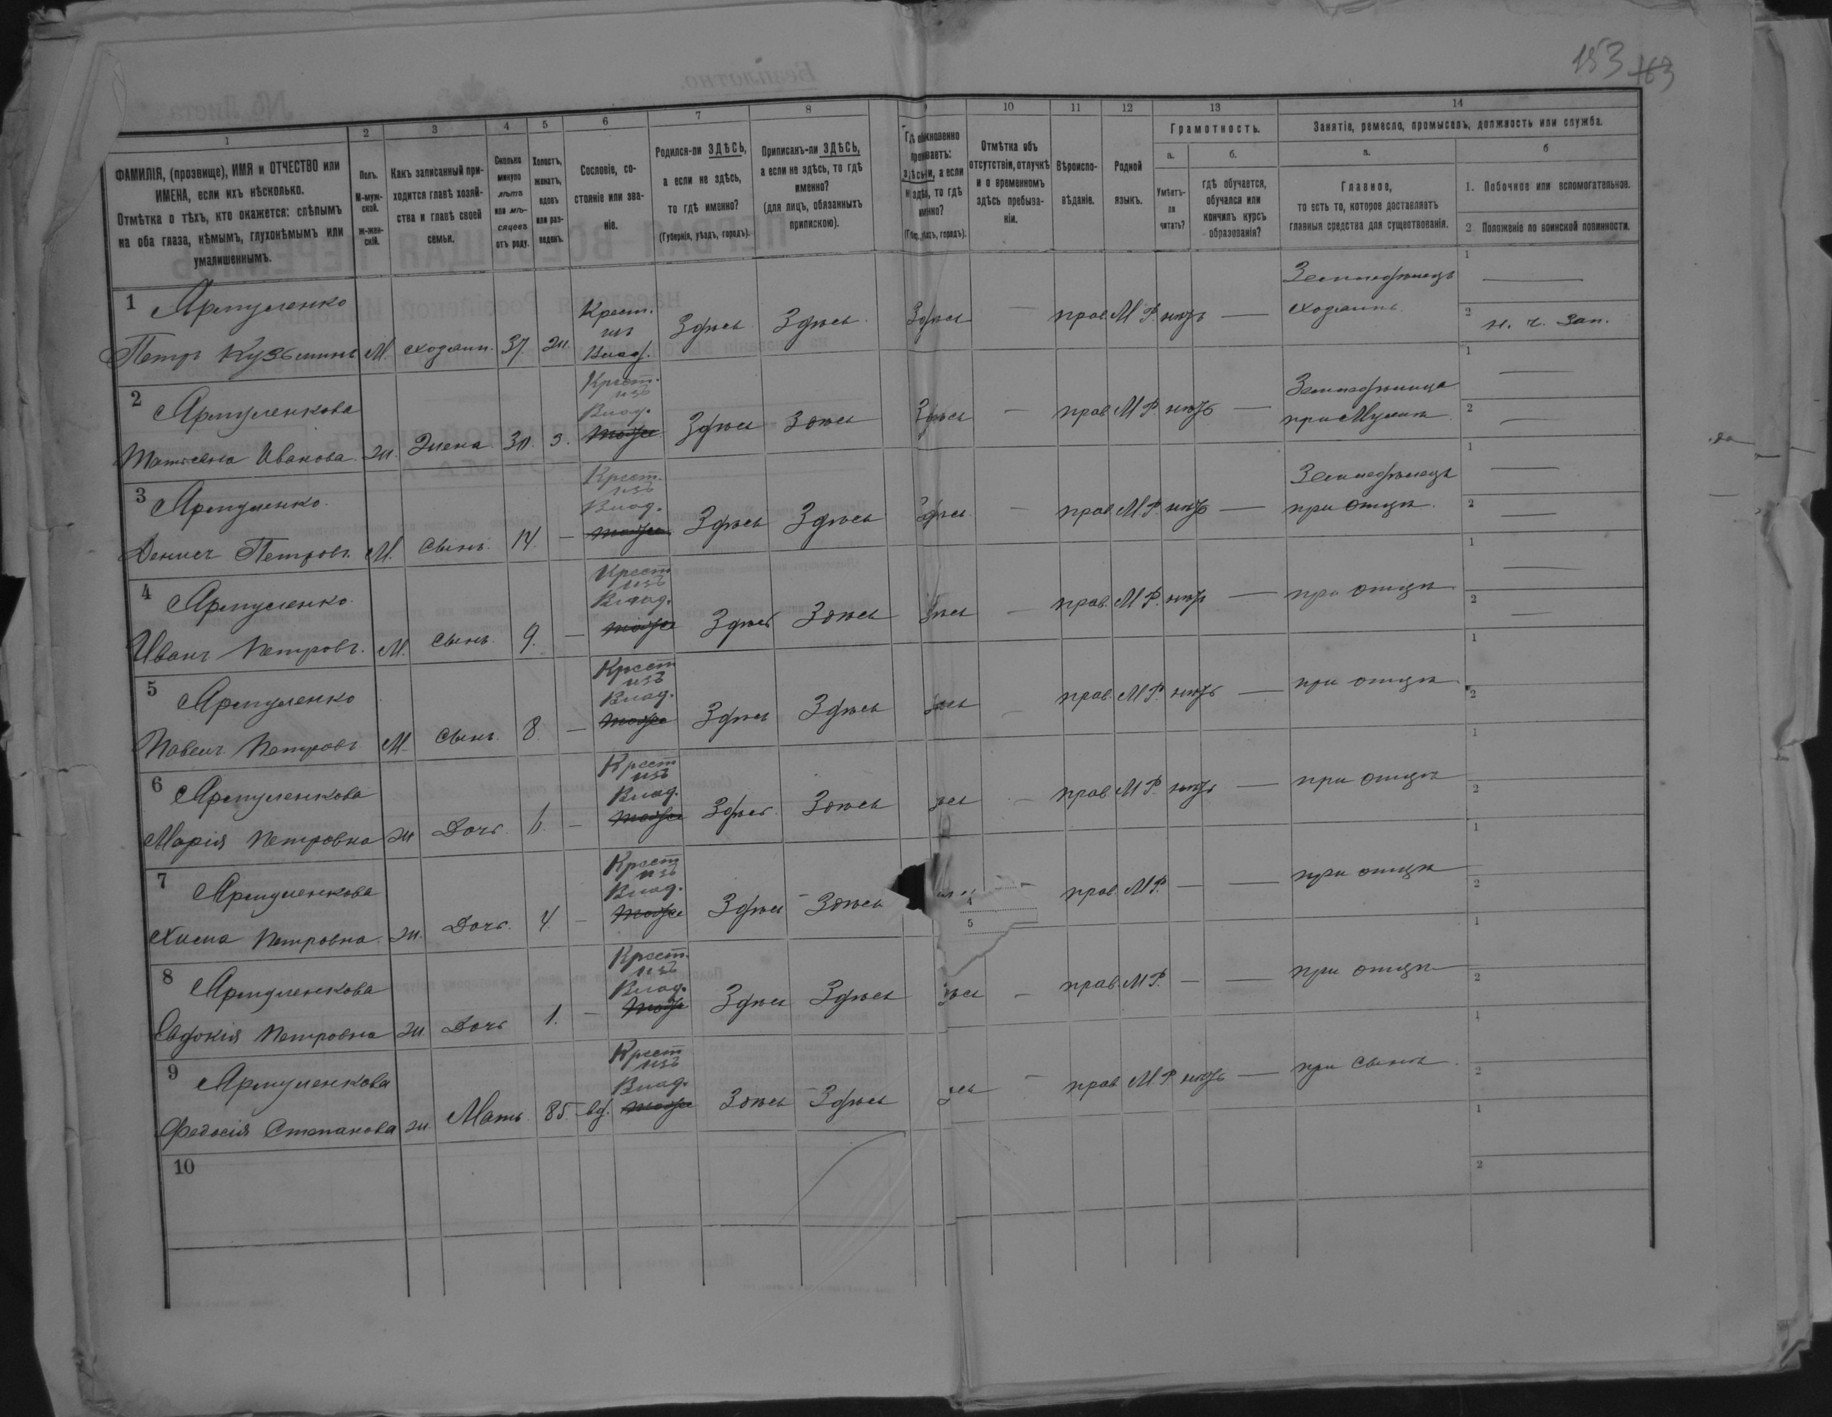 153 163
1
2
3
4
5
6
7
8
9
10
11
12
13
14
ФАМИЛІЯ, (прозвище), ИМЯ и ОТЧЕСТВО или
ИМЕНА, если ихъ нѣсколько.
Отмѣтка о тѣхъ, кто окажется: слѣпымъ
на оба глаза, нѣмымъ, глухонѣмымъ или
умалишеннымъ.
Полъ.
М-муж-
ской.
ж-жен-
скій.
Какъ записанный при-
ходится главѣ хозяй-
ства и главѣ своей
семьи.
Сколько
минуло
лѣтъ
или мѣ-
сяцевъ
отъ роду.
Холостъ,
женатъ,
вдовъ
или раз-
веденъ.
Сословіе, со-
стояніе или зва-
ніе.
Родился-ли ЗДѢСЬ,
а если не здѣсь,
то гдѣ именно?
(Губернія, уѣздъ, городъ).
Приписанъ-ли ЗДѢСЬ,
а если не здѣсь, то гдѣ
именно?
(для лицъ, обязанныхъ
припискою).
Отмѣтка объ
отсутствіи, отлучкѣ
и о временномъ
здѣсь пребыва-
ніи.
Вѣроиспо-
вѣданіе.
Родной
языкъ.
Грамотность.
а.
б.
Умѣетъ-
ли
читать?
гдѣ обучается,
обучался или
кончилъ курсъ
образованія?
Занятіе, ремесло, промыселъ, должность или служба.
а.
б
Главное,
то есть то, которое доставляетъ
главныя средства для существованія.
1. Побочное или вспомогательное.
2 Положеніе по воинской повинности.
1 Ярмуленко
Петръ Кузьминъ М. хозяин. 37 ж. Крест. изъ Влад. Здѣсь Здѣсь Здѣсь — прав М.Р. нѣтъ — Земледѣлецъ хозяинъ
1 —
2 н. ч. зап.
2 Ярмуленкова
Татьяна Иванова ж. Жена з. Крест. изъ Влад. Здѣсь Здѣсь Здѣсь — прав М.Р. нѣтъ — Земледѣлица при Мужѣ
1 —
2 —
3 Ярмуленко
Денисъ Петровъ М. сынъ 14 — Крест. изъ Влад. Здѣсь Здѣсь Здѣсь — прав М.Р. нѣтъ — Земледѣлецъ при отцѣ
1 —
2 —
4 Ярмуленко
Иванъ Петровъ М. сынъ 9. — Крест изъ Влад. Здѣсь Здѣсь — прав. М.Р. нѣтъ — при отцѣ
1 —
2 —
5 Ярмуленко
Павелъ Петровъ М. сынъ 8 — Крест изъ Влад. Здѣсь Здѣсь — прав. М.Р. нѣтъ — при отцѣ
1
2
6 Ярмуленкова
Марія Петровна ж Дочь 6. — Крест изъ Влад. Здѣсь Здѣсь — прав М.Р. нѣтъ — при отцѣ
1
2
7 Ярмуленкова
Петровна ж. Дочь 4 — Крест изъ Влад. Здѣсь Здѣсь — прав М.Р. — — при отцѣ
1
2
8 Ярмуленкова
Евдокія Петровна ж Дочь 1. — Крест. изъ Влад. Здѣсь Здѣсь — прав М.Р. — — при отцѣ
1
2
9 Ярмуленкова
Федосія Степанова ж. Мать 85 вд. Крест изъ Влад. Здѣсь Здѣсь — прав М.Р нѣтъ — при сынѣ
1
2
10
1
2